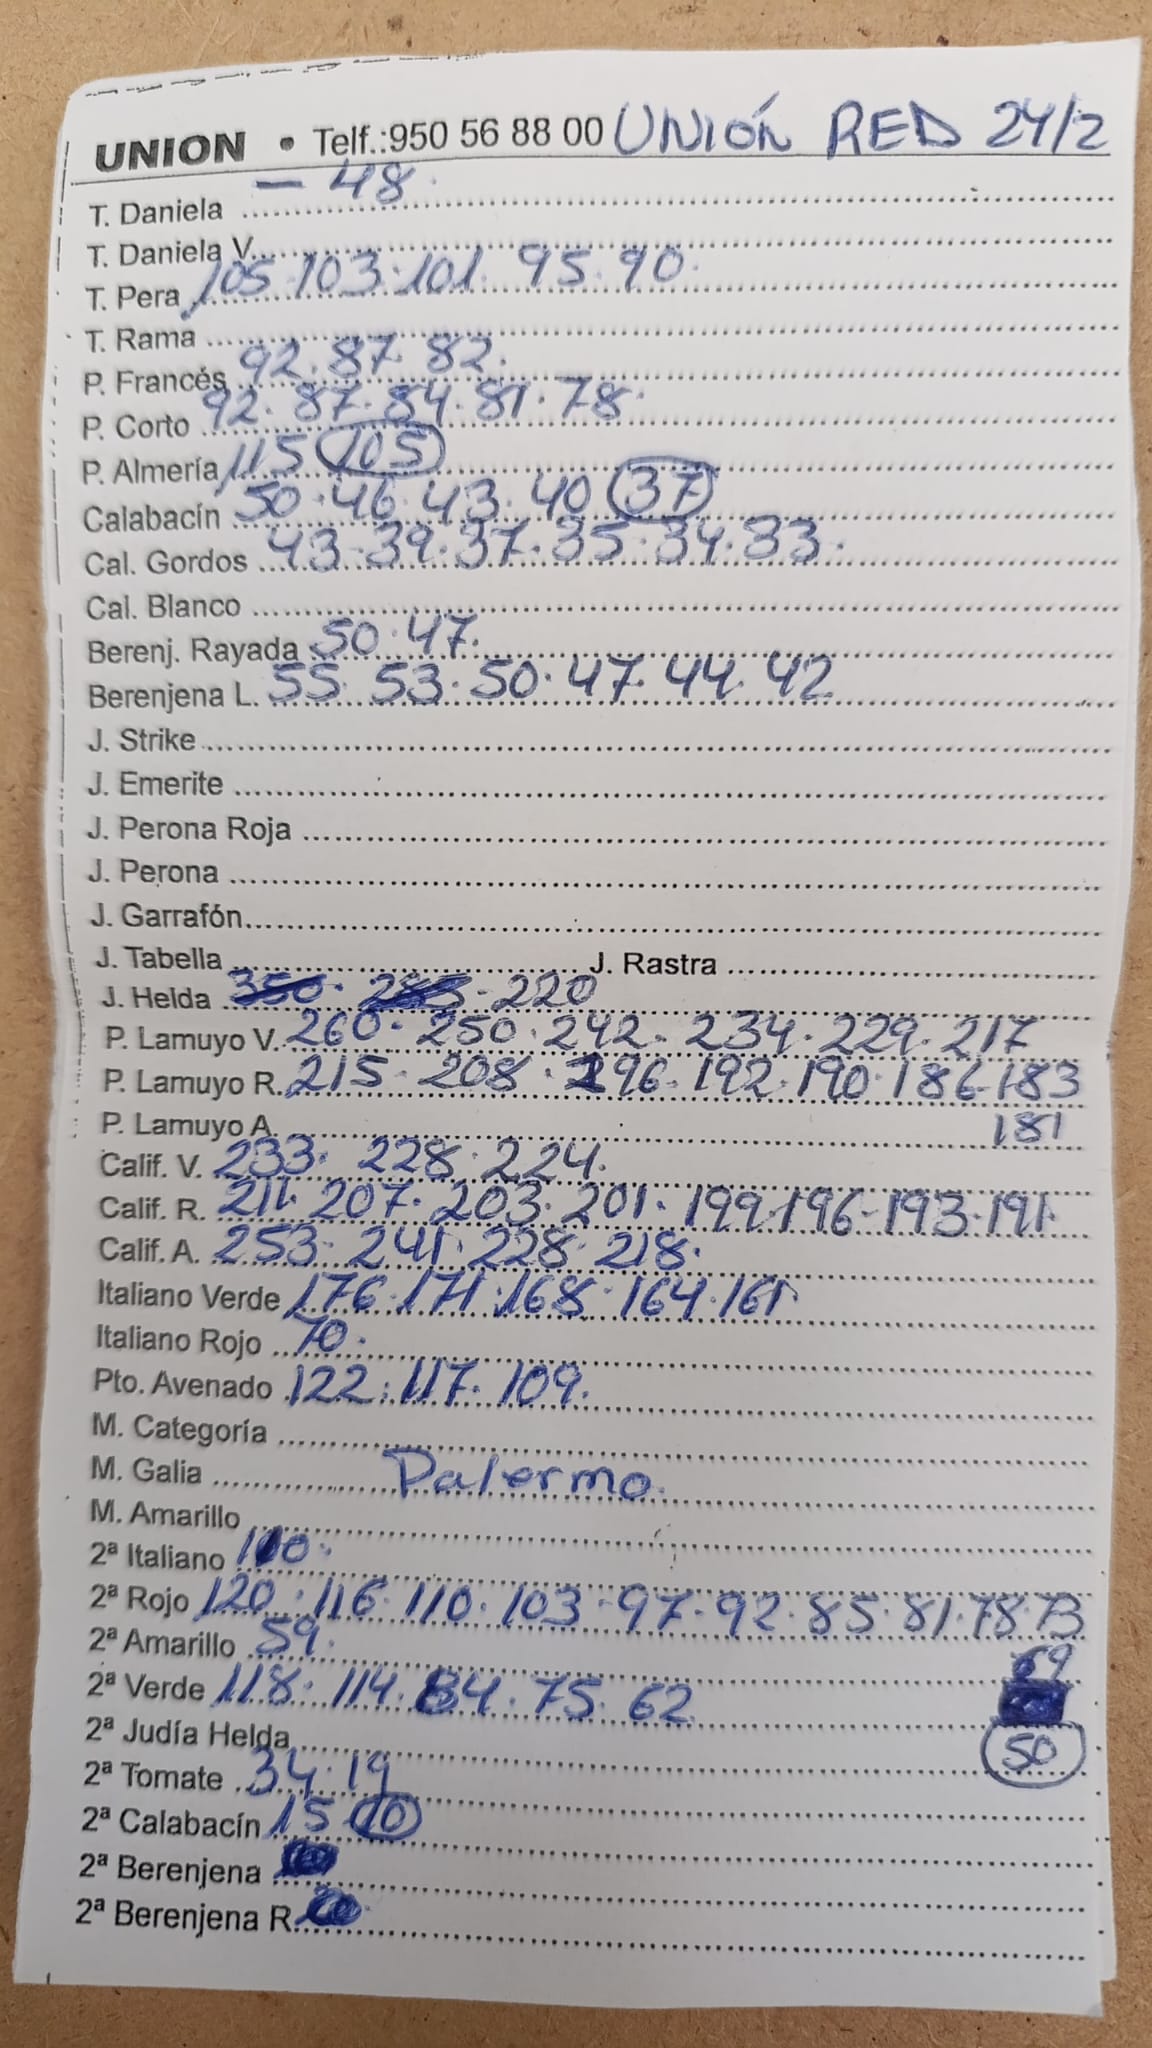 UNION • Telf.:950 56 88 00 UNIÓN RED 24/2
T. Daniela — 48.
T. Daniela V.
T. Pera 105. 103. 101. 95. 90.
T. Rama
P. Francés 92. 87. 82.
P. Corto 92. 87. 84. 81. 78.
P. Almería 115 105
Calabacín 50. 46. 43. 40 37
Cal. Gordos 43. 39. 37. 35. 34. 33.
Cal. Blanco
Berenj. Rayada 50. 47.
Berenjena L. 55. 53. 50. 47. 44. 42
J. Strike
J. Emerite
J. Perona Roja
J. Perona
J. Garrafón
J. Tabella J. Rastra
J. Helda 220
P. Lamuyo V. 260. 250. 242. 234. 229. 217
P. Lamuyo R. 215. 208. 196. 192. 190. 186. 183
P. Lamuyo A. 181
Calif. V. 233. 228. 224.
Calif. R. 211. 207. 203. 201. 199. 196. 193. 191.
Calif. A. 253. 241. 228. 218.
Italiano Verde 176. 171. 168. 164. 161.
Italiano Rojo 70.
Pto. Avenado 122. 117. 109.
M. Categoría
M. Galia Palermo.
M. Amarillo
2ª Italiano 100.
2ª Rojo 120. 116. 110. 103. 97. 92. 85. 81. 78. 73
2ª Amarillo 59. 69
2ª Verde 118. 114. 84. 75. 62
2ª Judía Helda 50
2ª Tomate 34. 19
2ª Calabacín 15 10
2ª Berenjena
2ª Berenjena R.